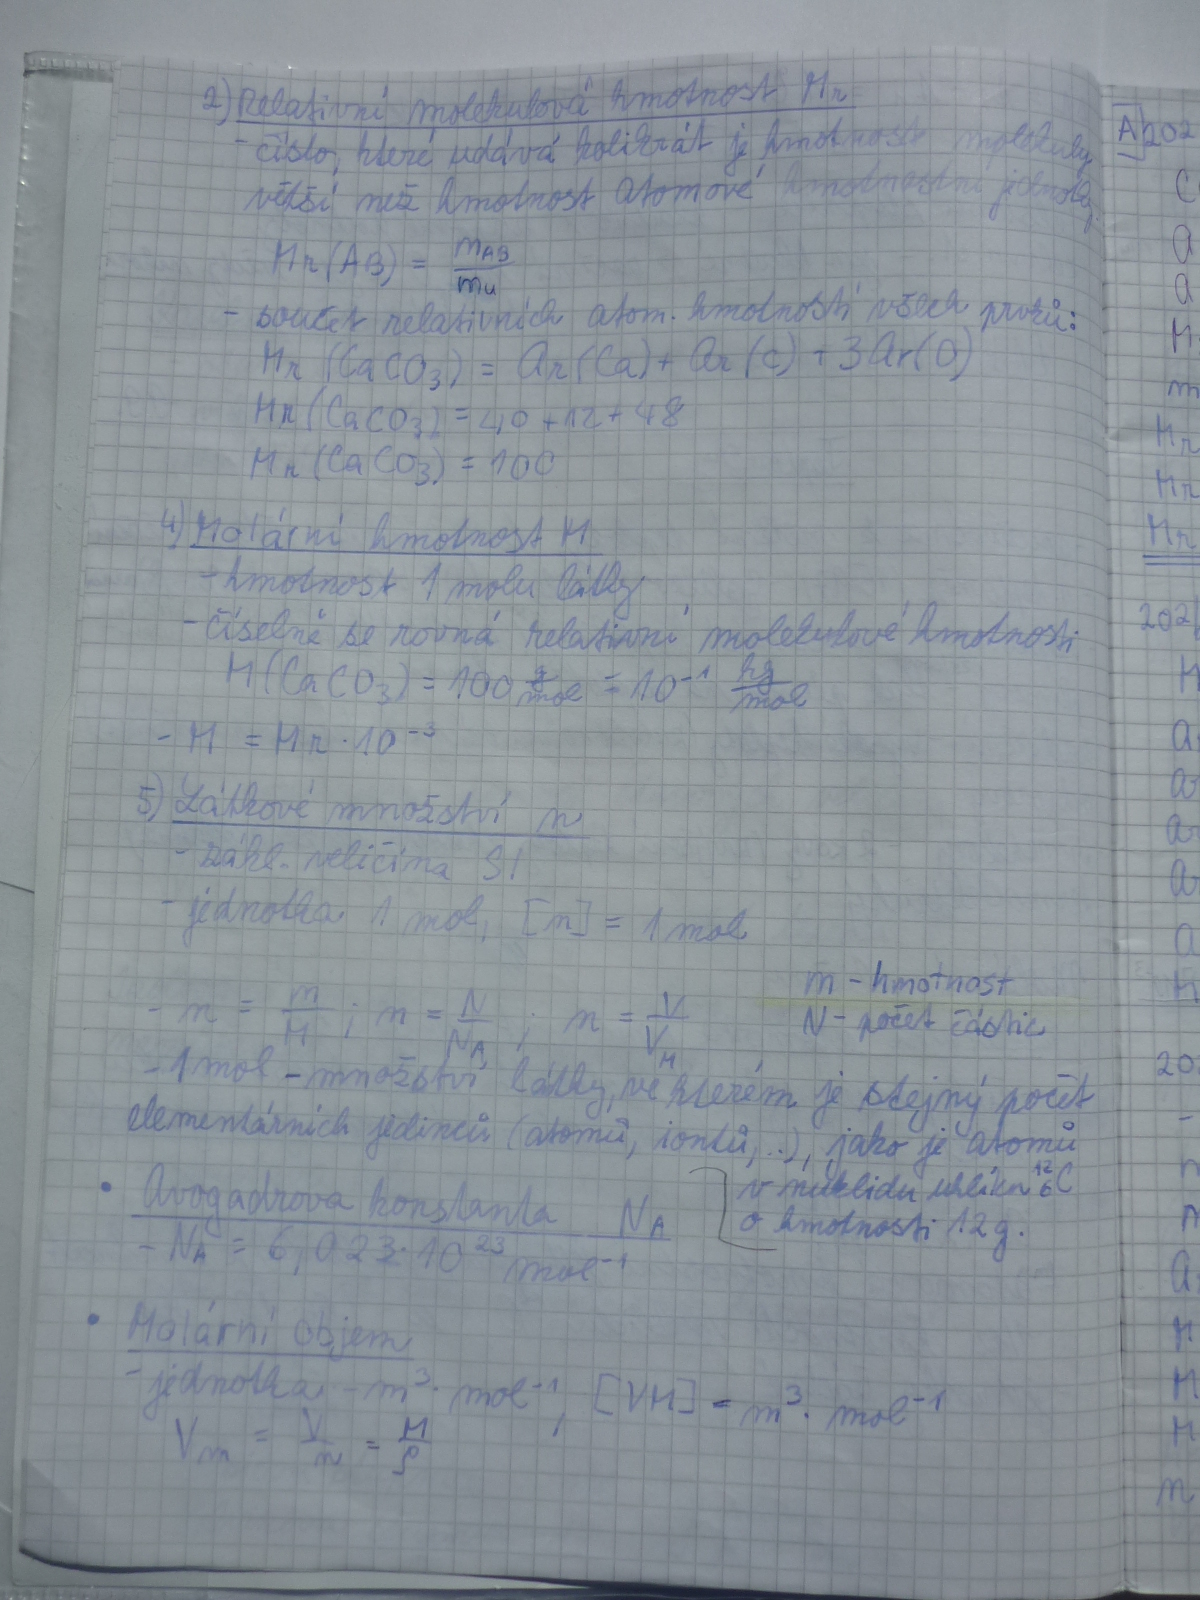 2) Relativní molekulová hmotnost Mr
- číslo, které udává kolikrát je hmotnost molekuly
větší než hmotnost atomové hmotnostní jednotky
Mr (AB) = mAB / mu
- součet relativních atom. hmotností všech prvků:
Mr (CaCO3) = Ar(Ca) + Ar(C) + 3Ar(O)
Mr (CaCO3) = 40 + 12 + 48
Mr (CaCO3) = 100
4) Molární hmotnost M
- hmotnost 1 molu látky
- číselně se rovná relativní molekulové hmotnosti
M (CaCO3) = 100 g/mol = 10⁻¹ kg/mol
- M = Mr · 10⁻³
5) Látkové množství n
- zákl. veličina SI
- jednotka 1 mol, [n] = 1 mol
m - hmotnost
N - počet částic
- n = m/M ; n = N/NA ; n = V/VM
- 1 mol - množství látky, ve kterém je stejný počet
elementárních jedinců (atomů, iontů, ..), jako je atomů
v nuklidu uhlíku ¹²₆C
o hmotnosti 12 g.
• Avogadrova konstanta NA
- NA = 6,023 · 10²³ mol⁻¹
• Molární objem
- jednotka - m³ · mol⁻¹, [VM] = m³ · mol⁻¹
Vm = V/n = M/ρ
A) 202
C
a
a
m
Mr
Mr
Mr
202
M
a
a
a
a
a
M
20
-
n
M
M
n